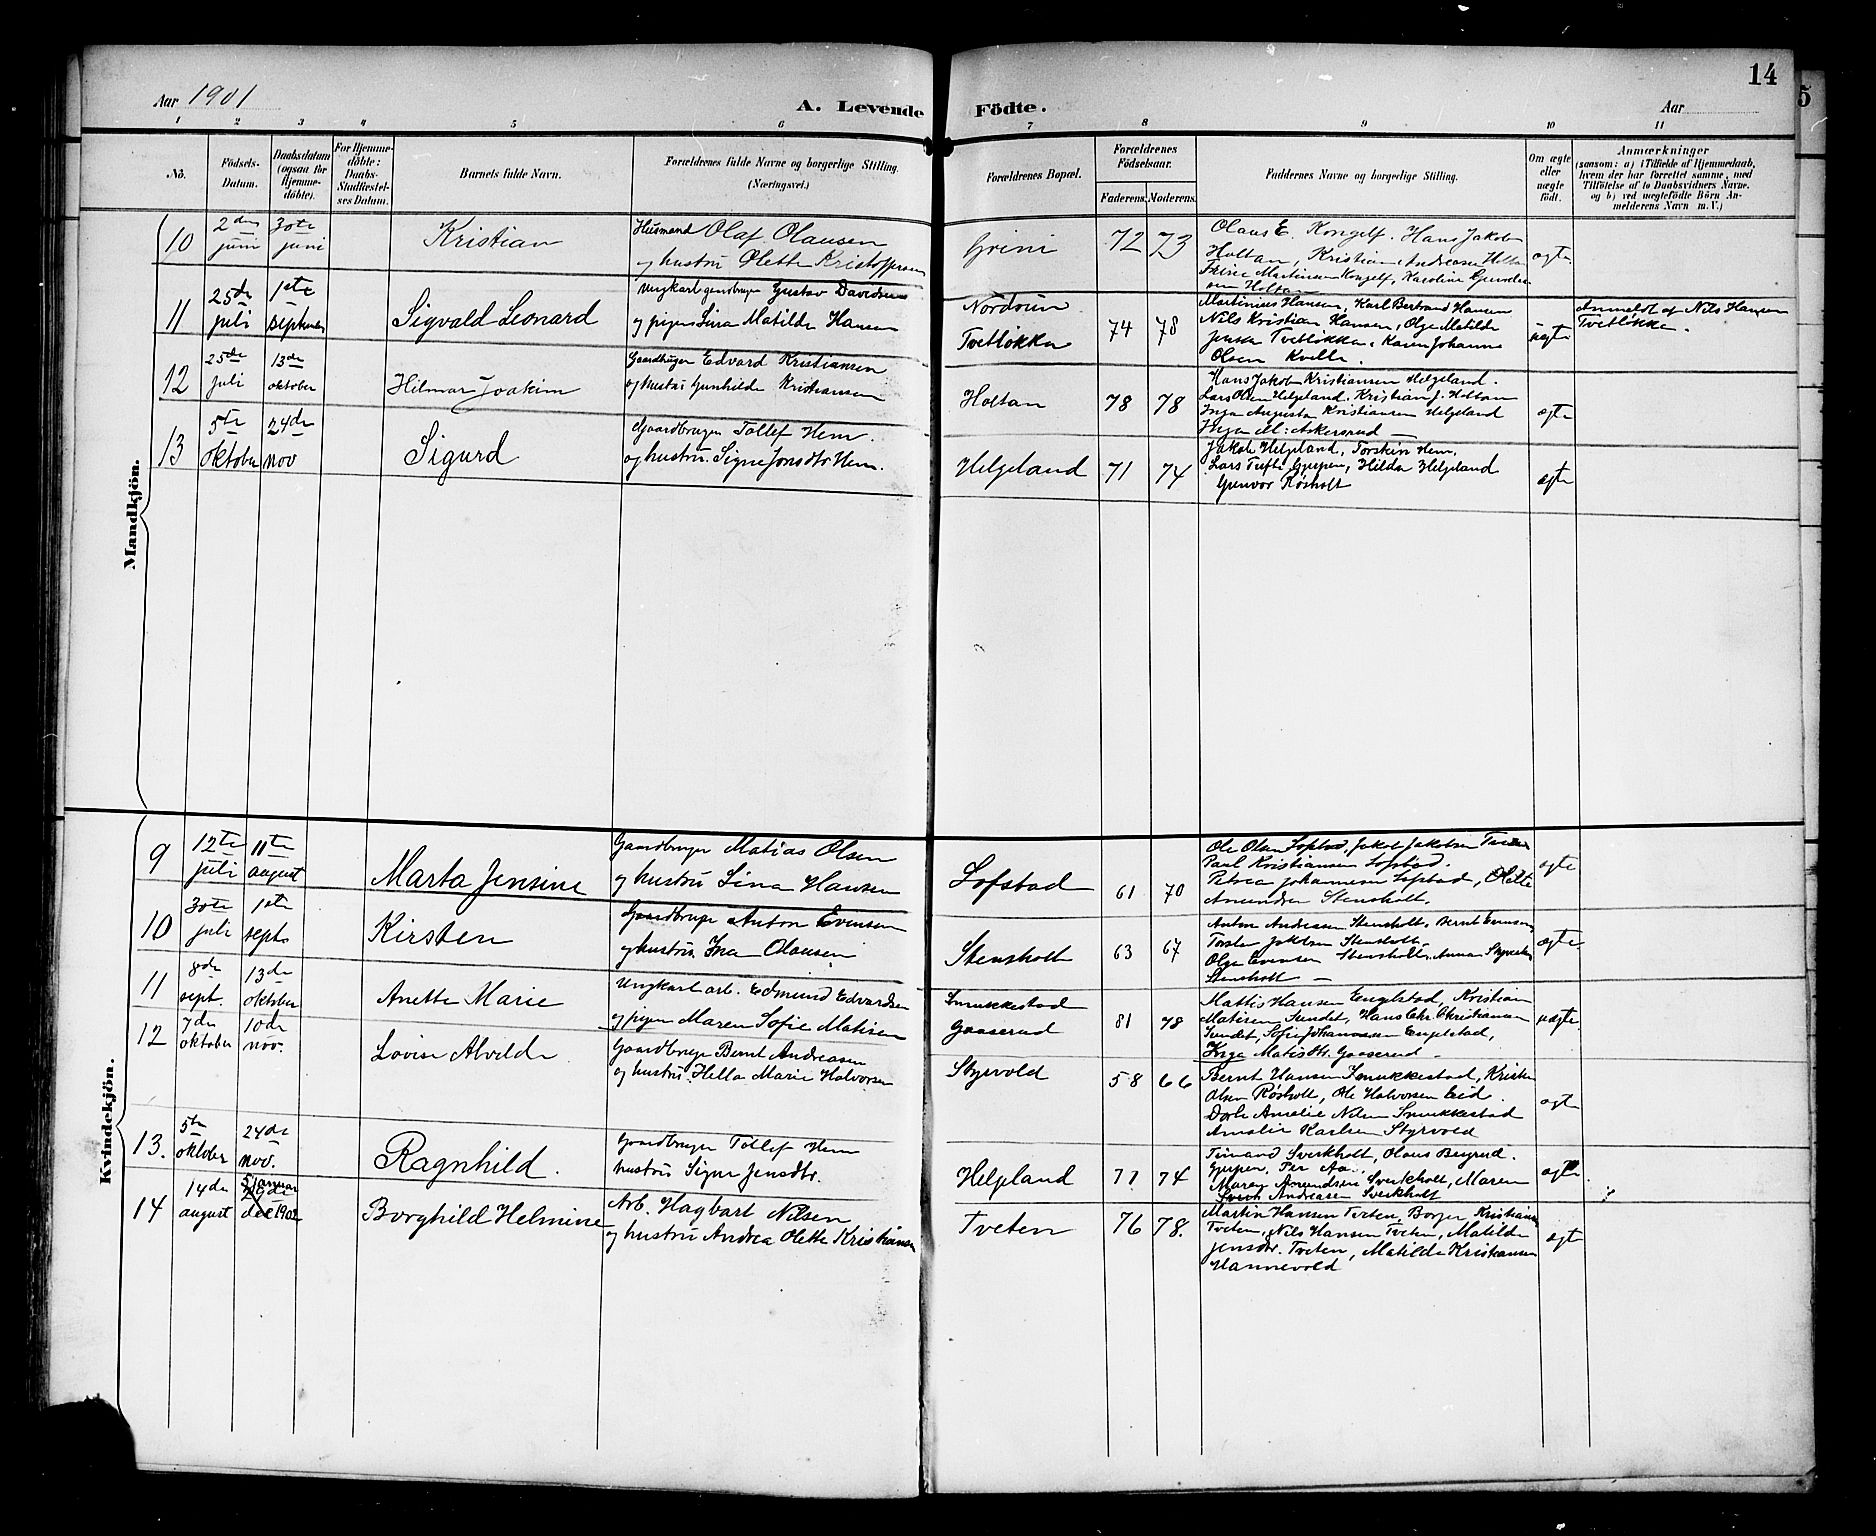 14
Aar 1901
A. Levende Födte.
Aar
1 2 3 4 5 6 7 8 9 10 11
No.
Födsels-Datum.
Daabsdatum (ogsaa for Hjemme-döbte).
For Hjemme-döbte: Daabs-Stadfæstel-ses Datum.
Barnets fulde Navn.
Forældrenes fulde Navne og borgerlige Stilling. (Næringsvei.)
Forældrenes Bopæl.
Forældrenes Födselsaar.
Faderens. Moderens.
Faddernes Navne og borgerlige Stilling.
Om ægte eller uægte födt.
Anmærkninger
(saasom: a) i Tilfælde af Hjemmedaab,
hvem der har forrettet samme, med
Tilföielse af to Daabsvidners Navne,
og b) ved uægtefödte Börn An-
melderens Navn m. V.)
Mandkjön.
10 2den juni 30te juni Kristian
Husmand Olaf Olausen
og hustru Olette Kristoffersen
Grini 72 73
Olaus E. Kongelf. Hans Jakob
Holtan, Kristian Andreasen Holtan
Martinsen Kongelf, Karoline
Holtan
ægte
11 25de juli 1ste september Sigvald Leonard
Ungkarl gaardbruger Gustav Davidsen
og pigen Lina Matilde Hansen
Nordsun
Tvetløkka
74 78
Martinius Hansen, Karl Bertrand Hansen
Nils Kristian Hansen, Olga Matilde
Jensen Tvetløkka, Karen Johanne
Olsen Kvelle.
uægte
Anmeldt af Nils Hansen
Tvetløkka.
12 25de juli 13de oktober Hilmar Joakim
Gaardbruger Edvard Kristiansen
og hustru Gunhilde Kristiansen
Holtan 78 78
Hans Jakob Kristiansen Helgeland.
Lars Olsen Helgeland, Kristian J. Holtan
Inga Augusta Kristiansen Helgeland
Inga M: Askersrud
ægte
13 5te oktober 24de nov Sigurd
Gaardbruger Tollef Hem.
og hustru. Signe Jonsdtr Hem.
Helgeland 71 74
Jakob Helgeland, Torstein Hem,
Lars Tufte Gjerpen, Hilda Helgeland
Gunvor Røsholt
ægte
Kvindekjön.
9 12te juli 11te august Marta Jensine
Gaardbruger Matias Olsen
og hustru Lina Hansen
Lofstad 61 70
Ole Olsen Lofstad, Jakob Jakobsen
Paul Kristiansen Lofstad.
Petrea Johannesen Lofstad, Olette
Amundsen Stensholt.
ægte
10 30te juli 1ste sept. Kirsten
Gaardbruger Anton Evensen
og hustru Ina Olausen
Stensholt 63 67
Anton Andreassen Stensholt, Bernt Evensen
Torsten Jakobsen Stensholt
Olga Evensen Stensholt, Anna
Stensholt
ægte
11 8de sept. 13de oktober Anette Marie
Ungkarl arb. Edmund Edvardsen
og pigen Maren Sofie Matisen
Smukkestad
Gaaserud
81 78
Mattis Hansen Engelstad, Kristian
Matisen Sundet, Hans Chr. Christiansen
Sundet, Sofie Johannessen Engelstad,
Inga Matisdtr. Gaaserud
uægte
12 7de oktober 10de nov. Lovise Alvilde
Gaardbruger Bernt Andreasen
og hustru Hella Marie Halvorsen
Styrvold 58 66
Bernt Hansen Smukkestad, Kristen
Olsen Røsholt, Ole Halvorsen Eid.
Dorte Amalie Nilsen Smukkestad
Amalie Karlsen Styrvold
ægte
13. 5te oktober 24de nov. Ragnhild.
Gaardbruger Tollef Hem
hustru Signe Jonsdtr.
Helgeland 71 74
Sverkholt, Olaus
Gjerpen, Per Aa.
Maren Amundsen Sverkholt, Maren
Andreasen Sverkholt
ægte
14 14de august 5 januar 29de dec 1902 Borghild Helmine
Arb. Hagbart Nilsen
og hustru Andrea Olette Kristiansen
Tveten 76 78.
Martin Hansen Tveten, Borger Kristiansen
Tveten, Nils Hansen Tveten, Matilde
Jensdtr. Tveten, Matilde Kristiansen
Hannevold
ægte